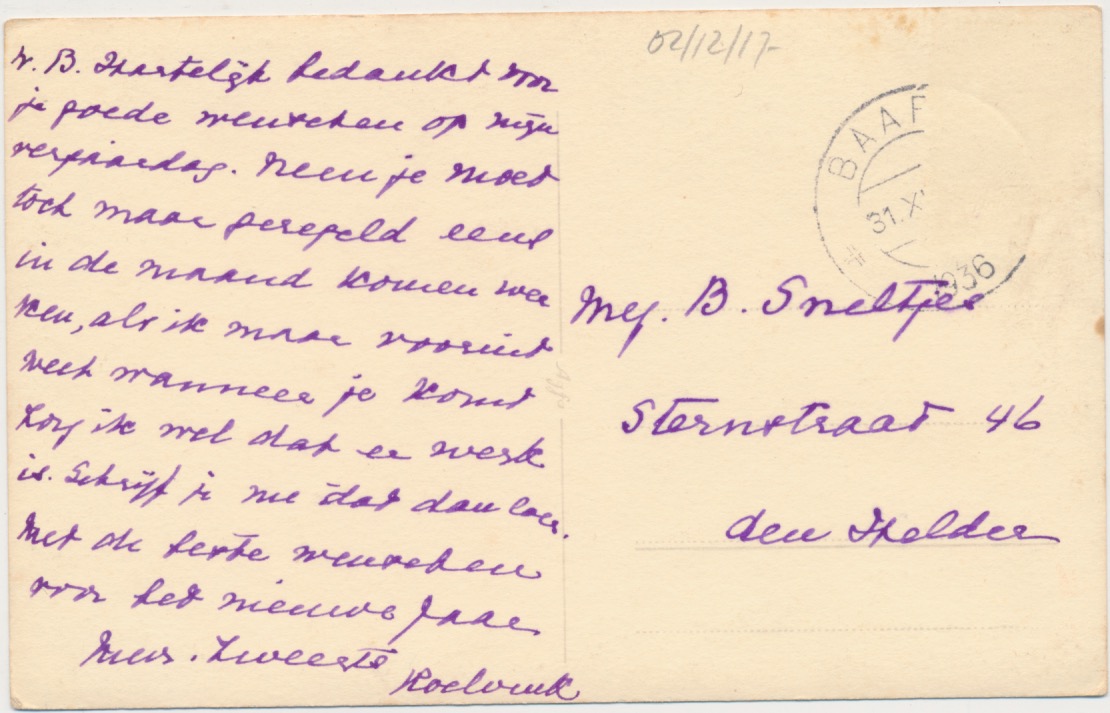 V. B. Hartelijk bedankt voor
je goede wenschen op mijn
verjaardag. Neen je moet
toch maar geregeld eens
in de maand komen wer
ken, als ik maar vooruit
weet wanneer je komt
zorg ik wel dat er werk
is. Schrijf je me dat dan
Met de beste wenschen
voor het nieuwe jaar
Mevr.
02/12/17-
BAAF
31.X
1936
Mej. B. Sneltjes
Sternstraat 46
den Helder